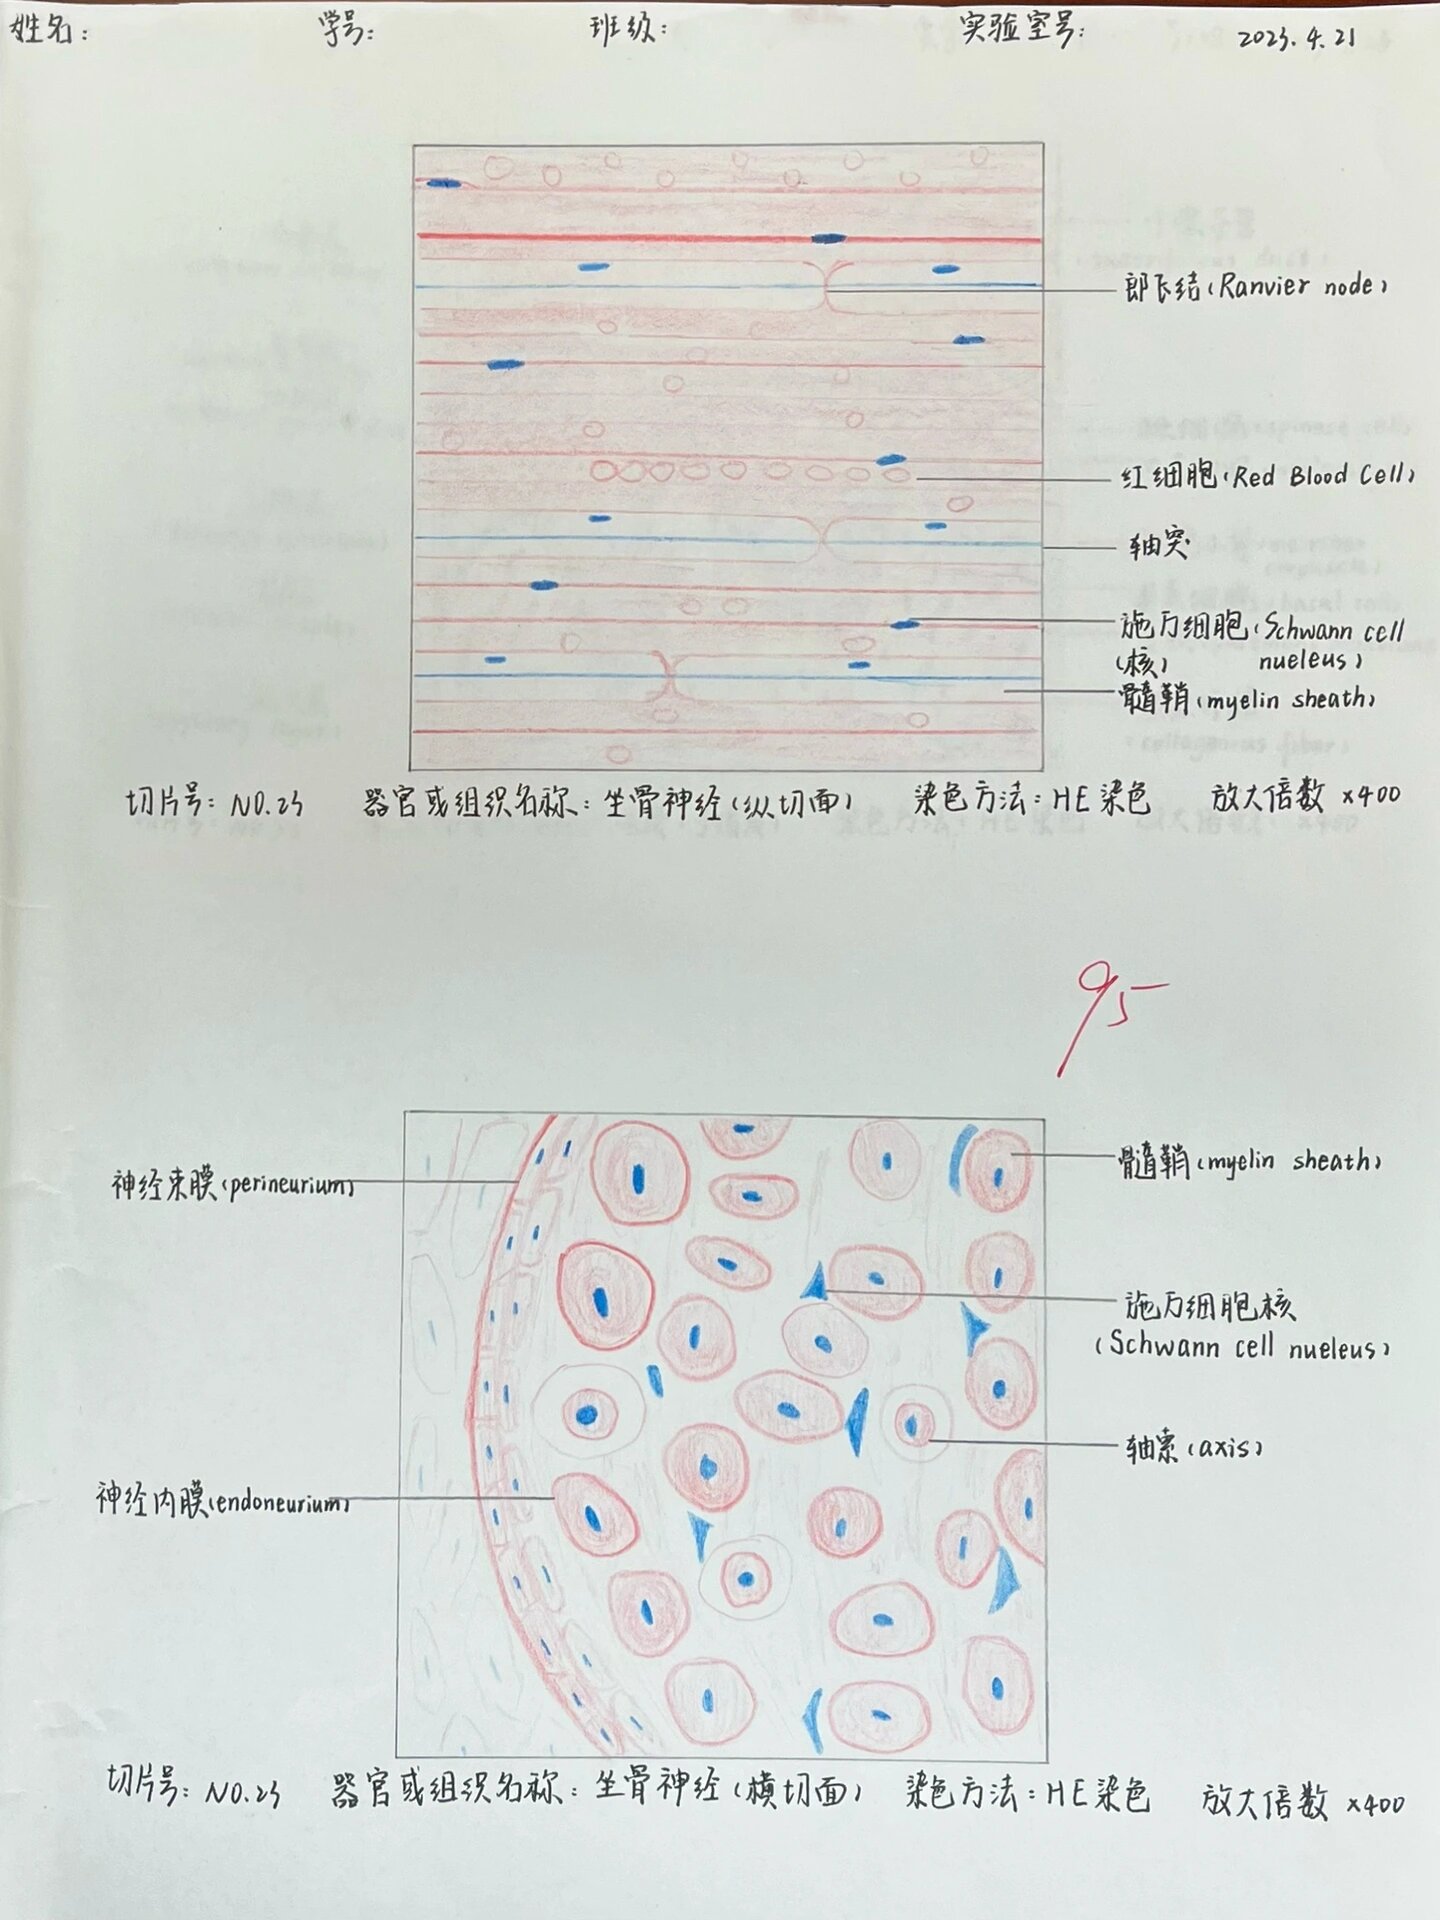 姓名：
学号：
班级：
实验室号：
2023.4.21
郎飞结（Ranvier node）
红细胞（Red Blood Cell）
轴突
施万细胞（Schwann cell
（核） nueleus）
髓鞘（myelin sheath）
切片号：NO.23 器官或组织名称：坐骨神经（纵切面） 染色方法：HE染色 放大倍数 ×400
95
神经束膜（perineurium）
髓鞘（myelin sheath）
施万细胞核
（Schwann cell nueleus）
轴索（axis）
神经内膜（endoneurium）
切片号：NO.23 器官或组织名称：坐骨神经（横切面） 染色方法：HE染色 放大倍数 ×400